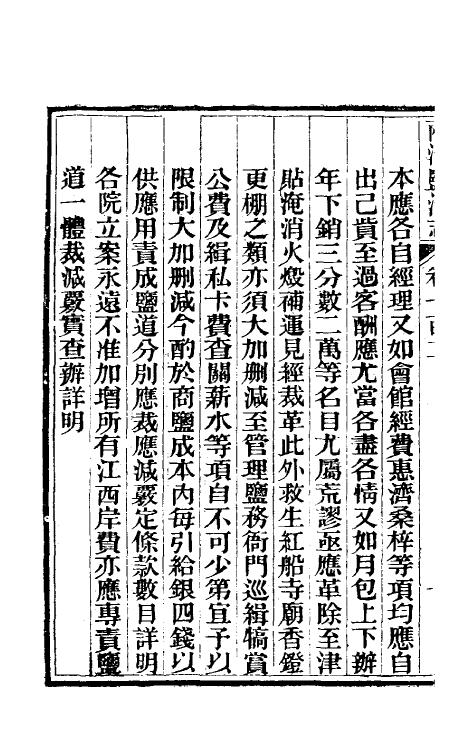 本應各自經理又如會館經費惠濟桑梓等項均應自
出己貲至過客酬應尤當各盡各情又如月包上下辦
年下銷三分數二萬等名目尤屬荒謬亟應革除至津
貼淹消火燬補運見經裁革此外救生紅船寺廟香鐙
更棚之類亦須大加刪減至管理鹽務衙門巡緝犒賞
公費及緝私卡費查關薪水等項自不可少第宜予以
限制大加刪減今酌於商鹽成本內每引給銀四錢以
供應用責成鹽道分別應裁應減覈定條款數目詳明
各院立案永遠不准加增所有江西岸費亦應專責鹽
道一體裁減覈實查辦詳明